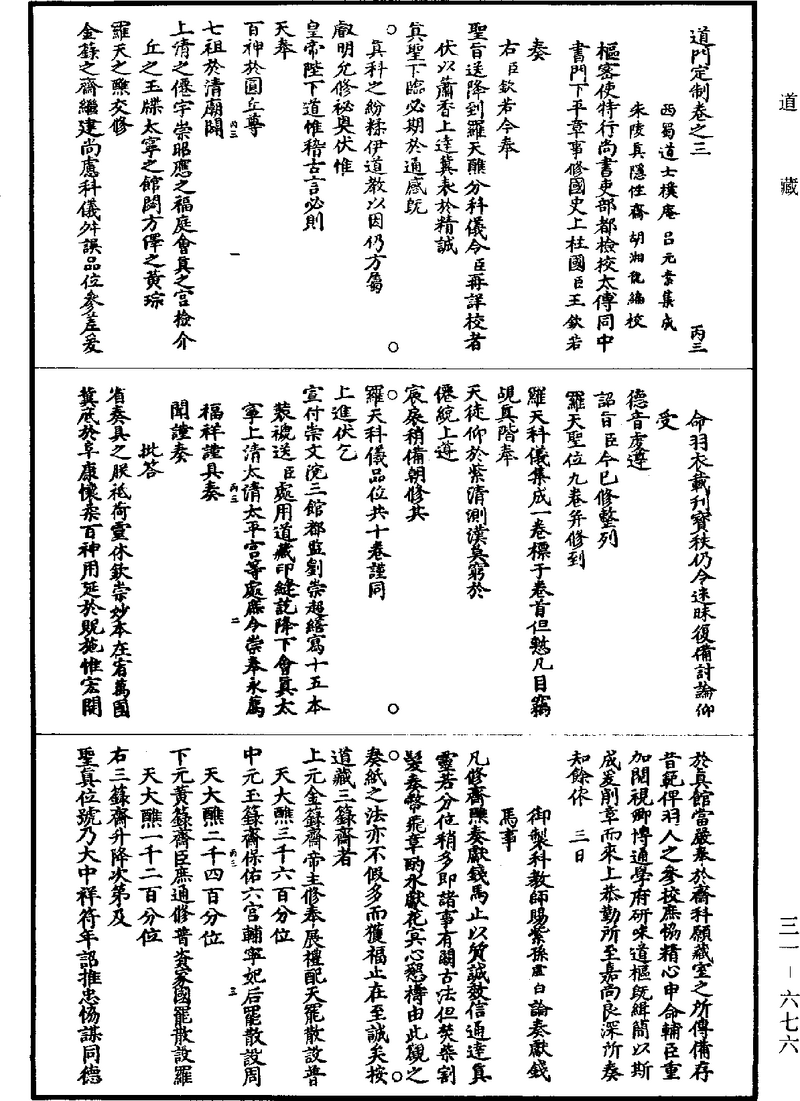 道藏
三一－六七六
道門定制卷之三　丙三
西蜀道士樸庵呂元素集成
朱陵真隱性齋胡湘龍編校
樞密使特行尚書吏部都檢校太傅同中
書門下平章事修國史上柱國臣王欽若
奏
右臣欽若今奉
聖旨送降到羅天醮分科儀令臣再詳校者
伏以蕭香上達冀表於精誠
真聖下臨必期於通感既
真科之紛糅伊道教以因仍方屬
叡明允修祕奧伏惟
皇帝陛下道惟稽古言必則
天奉
百神於圓丘尊
七祖於清廟闢
上清之僊宇崇昭應之福庭會真之宮檢介
丘之玉牒太寧之館閟方澤之黃琮
羅天之醮交修
金籙之齋繼建尚慮科儀舛誤品位參差爰
丙三　一
命羽衣載刊寶秩仍令迷昧復備討論仰
受
德音虔遵
詔旨臣今已修整列
羅天聖位九卷并修到
羅天科儀集成一卷標于卷首但愁凡目竊
覘真階奉
天徒仰於紫清測漢莫窮於
僊統上遵
宸扆稍備朝修其
羅天科儀品位共十卷謹同
上進伏乞
宣付崇文院三館都監劉崇超繕寫十五本
裝褫送臣處用道藏印縫訖降下會真太
寧上清太清太平宮等處庶令崇奉永萬
福祥謹具奏
聞謹奏
批答
省奏具之朕祗荷靈休欽崇妙本在宥萬國
冀底於阜康懷柔百神用延於貺施惟宏闡
丙三　二
於真館當嚴奉於齋科願藏室之所傳備存
昔範俾羽人之參校庶協精心申命輔臣重
加閱視卿博通學府研味道樞既緝簡以斯
成爰削章而來上恭勤所至嘉尚良深所奏
知餘依　三日
御製科教師賜紫孫虛白論奏獻錢
馬事
凡修齋醮奏獻錢馬止以質誠效信通達真
靈若分位稍多即諸事有闕古法但焚柴割
髮奏幣飛章酌水獻花冥心懇禱由此觀之
奏紙之法亦不假多而獲福止在至誠矣按
道藏三籙齋者
上元金籙齋帝主修奉展禮配天罷散設普
天大醮三千六百分位
中元玉籙齋保佑六宮輔寧妃后罷散設周
天大醮二千四百分位
下元黃籙齋臣庶通修普資家國罷散設羅
天大醮一千二百分位
右三籙齋升降次第及
聖真位號乃大中祥符年詔推忠協謀同德
丙三　三